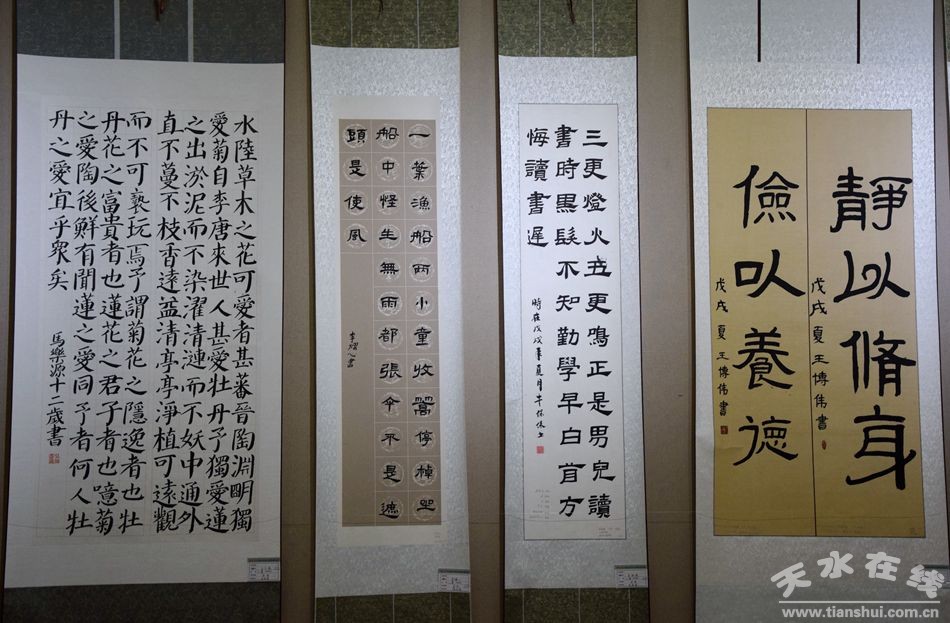 水陸草木之花可愛者甚蕃晉陶淵明獨
愛菊自李唐來世人甚愛牡丹予獨愛蓮
之出淤泥而不染濯清漣而不妖中通外
直不蔓不枝香遠益清亭亭淨植可遠觀
而不可褻玩焉予謂菊花之隱逸者也牡
丹花之富貴者也蓮花之君子者也噫菊
之愛陶後鮮有聞蓮之愛同予者何人牡
丹之愛宜乎眾矣
馬樂源十二歲書
一葉漁船兩小童收篙停棹坐
船中怪生無雨都張傘不是遮
頭是使風
三更燈火五更鳴正是男兒讀
書時黑髮不知勤學早白首方
悔讀書遲
時在戊戌
靜以脩身
戊戌夏王博偉書
儉以養德
戊戌夏王博偉書
天水在线
www.tianshui.com.cn